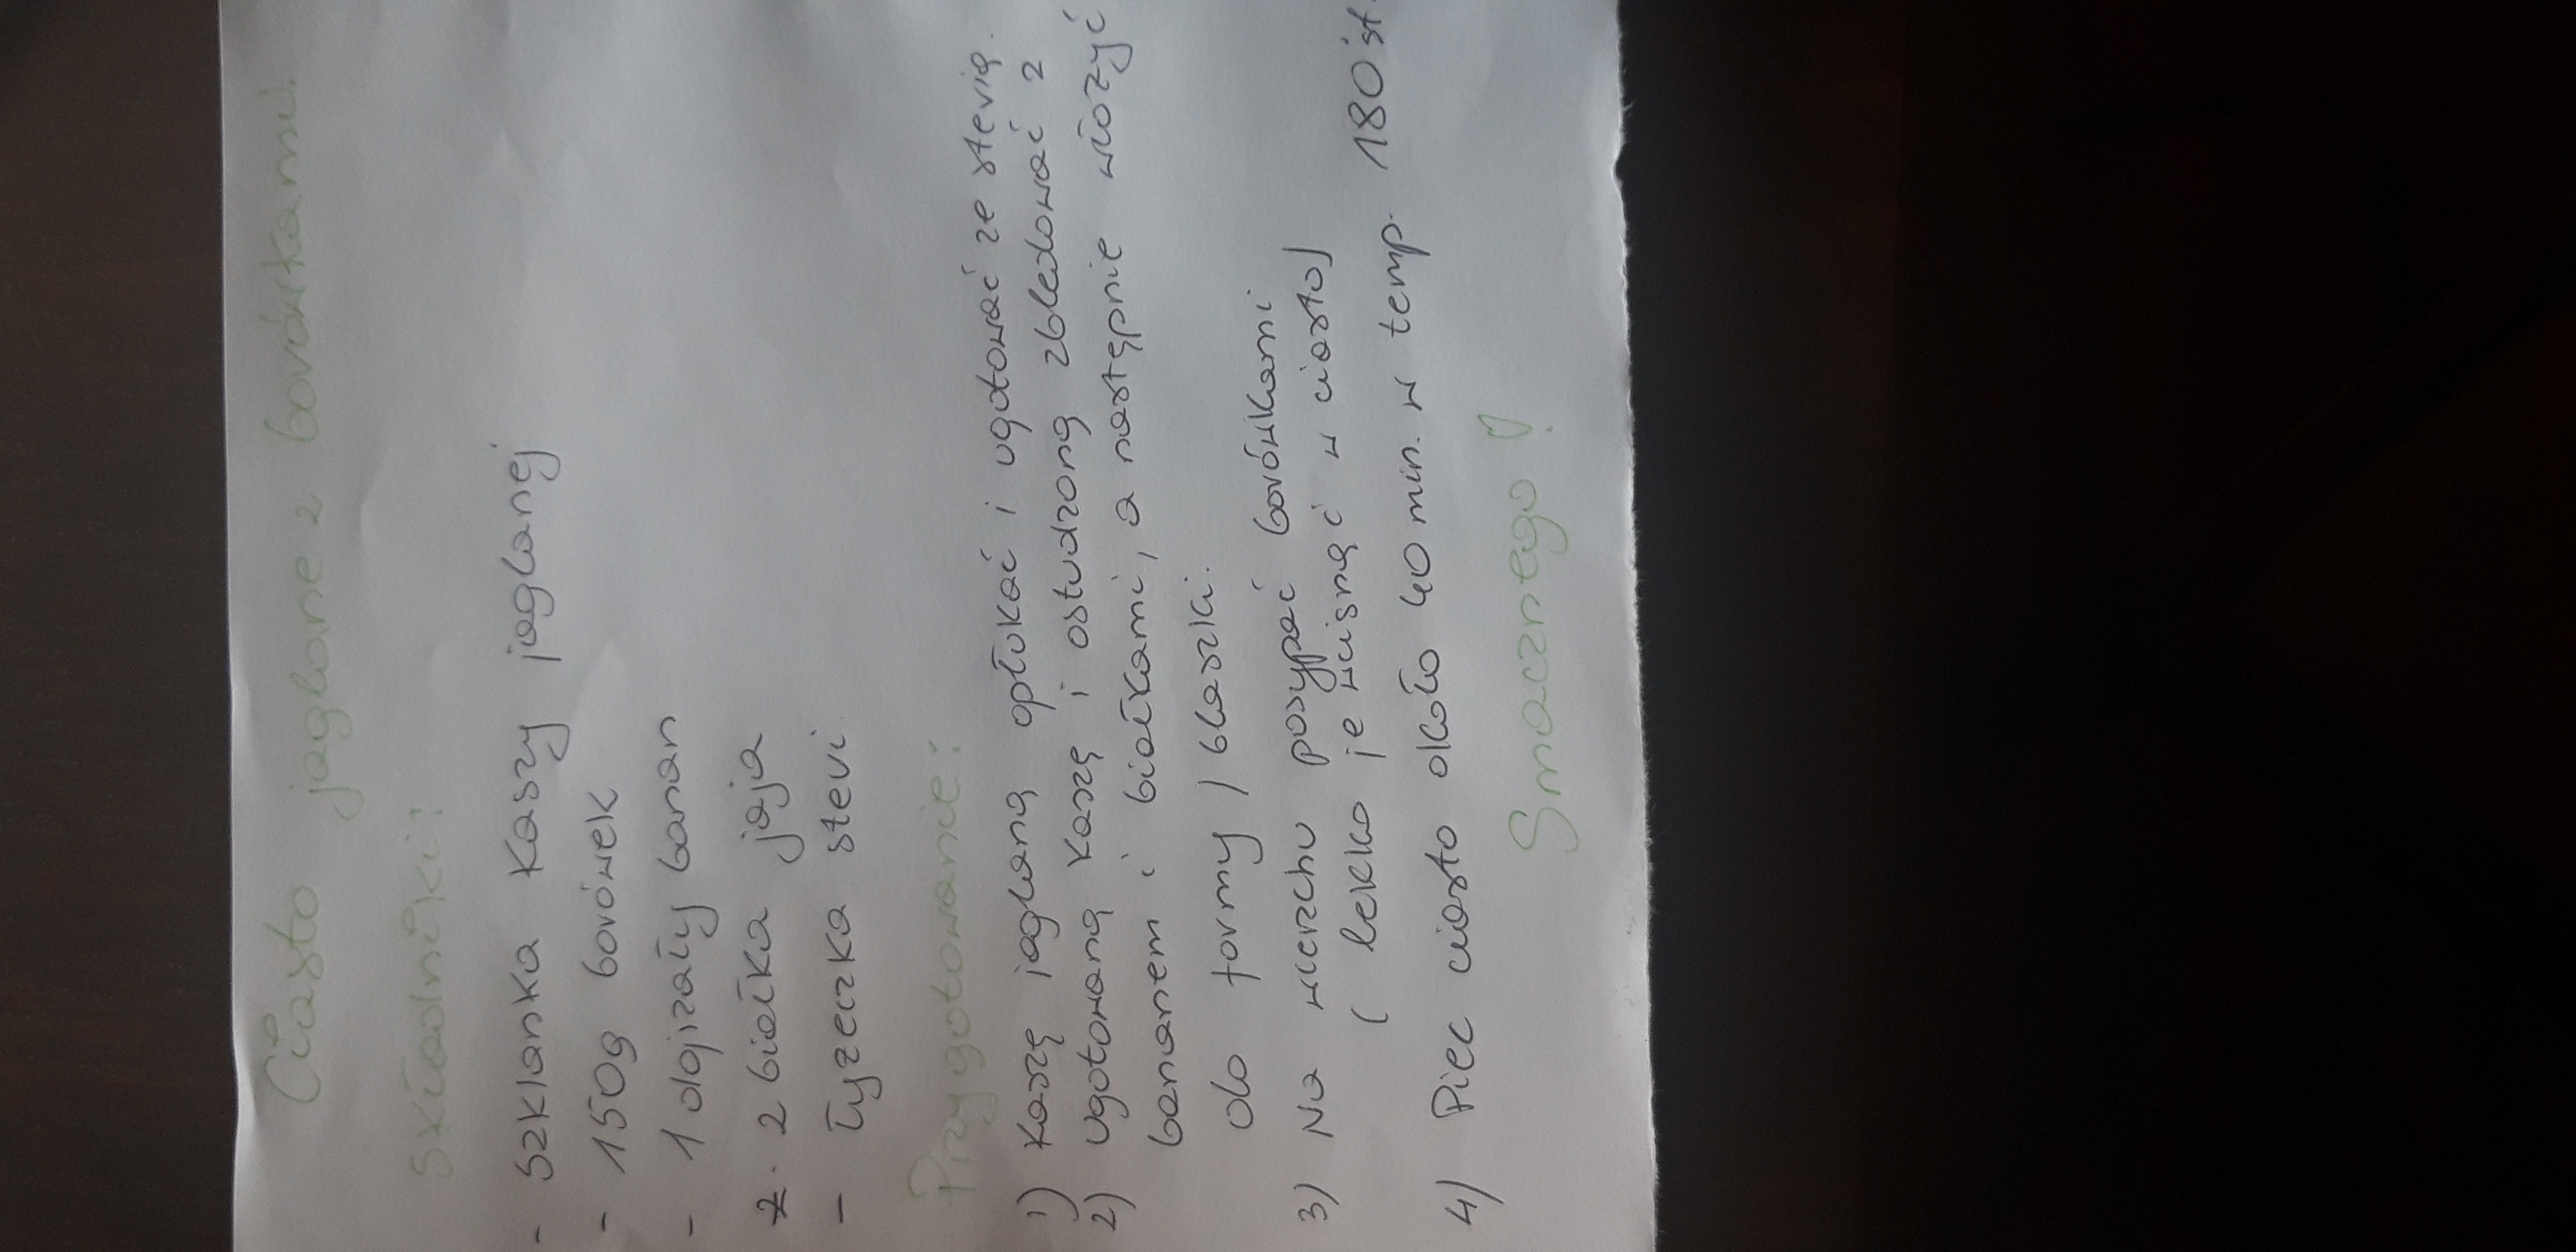 Ciasto jaglane z borówkami.
Składniki:
- Szklanka Kaszy jaglanej
- 150g borówek
- 1 dojrzały banan
- 2 białka jaja
- łyżeczka stevi
Przygotowanie:
1) Kaszę jaglaną opłukać i ugotować ze stevią.
2) Ugotowaną Kaszę i ostudzoną zbledować z
bananem i białkami, a następnie włożyć
do formy / blaszki.
3) Na wierzchu posypać borówkami
( lekko je wcisnąć w ciasto)
4) Piec ciasto około 40 min. w temp. 180 st.
Smacznego!